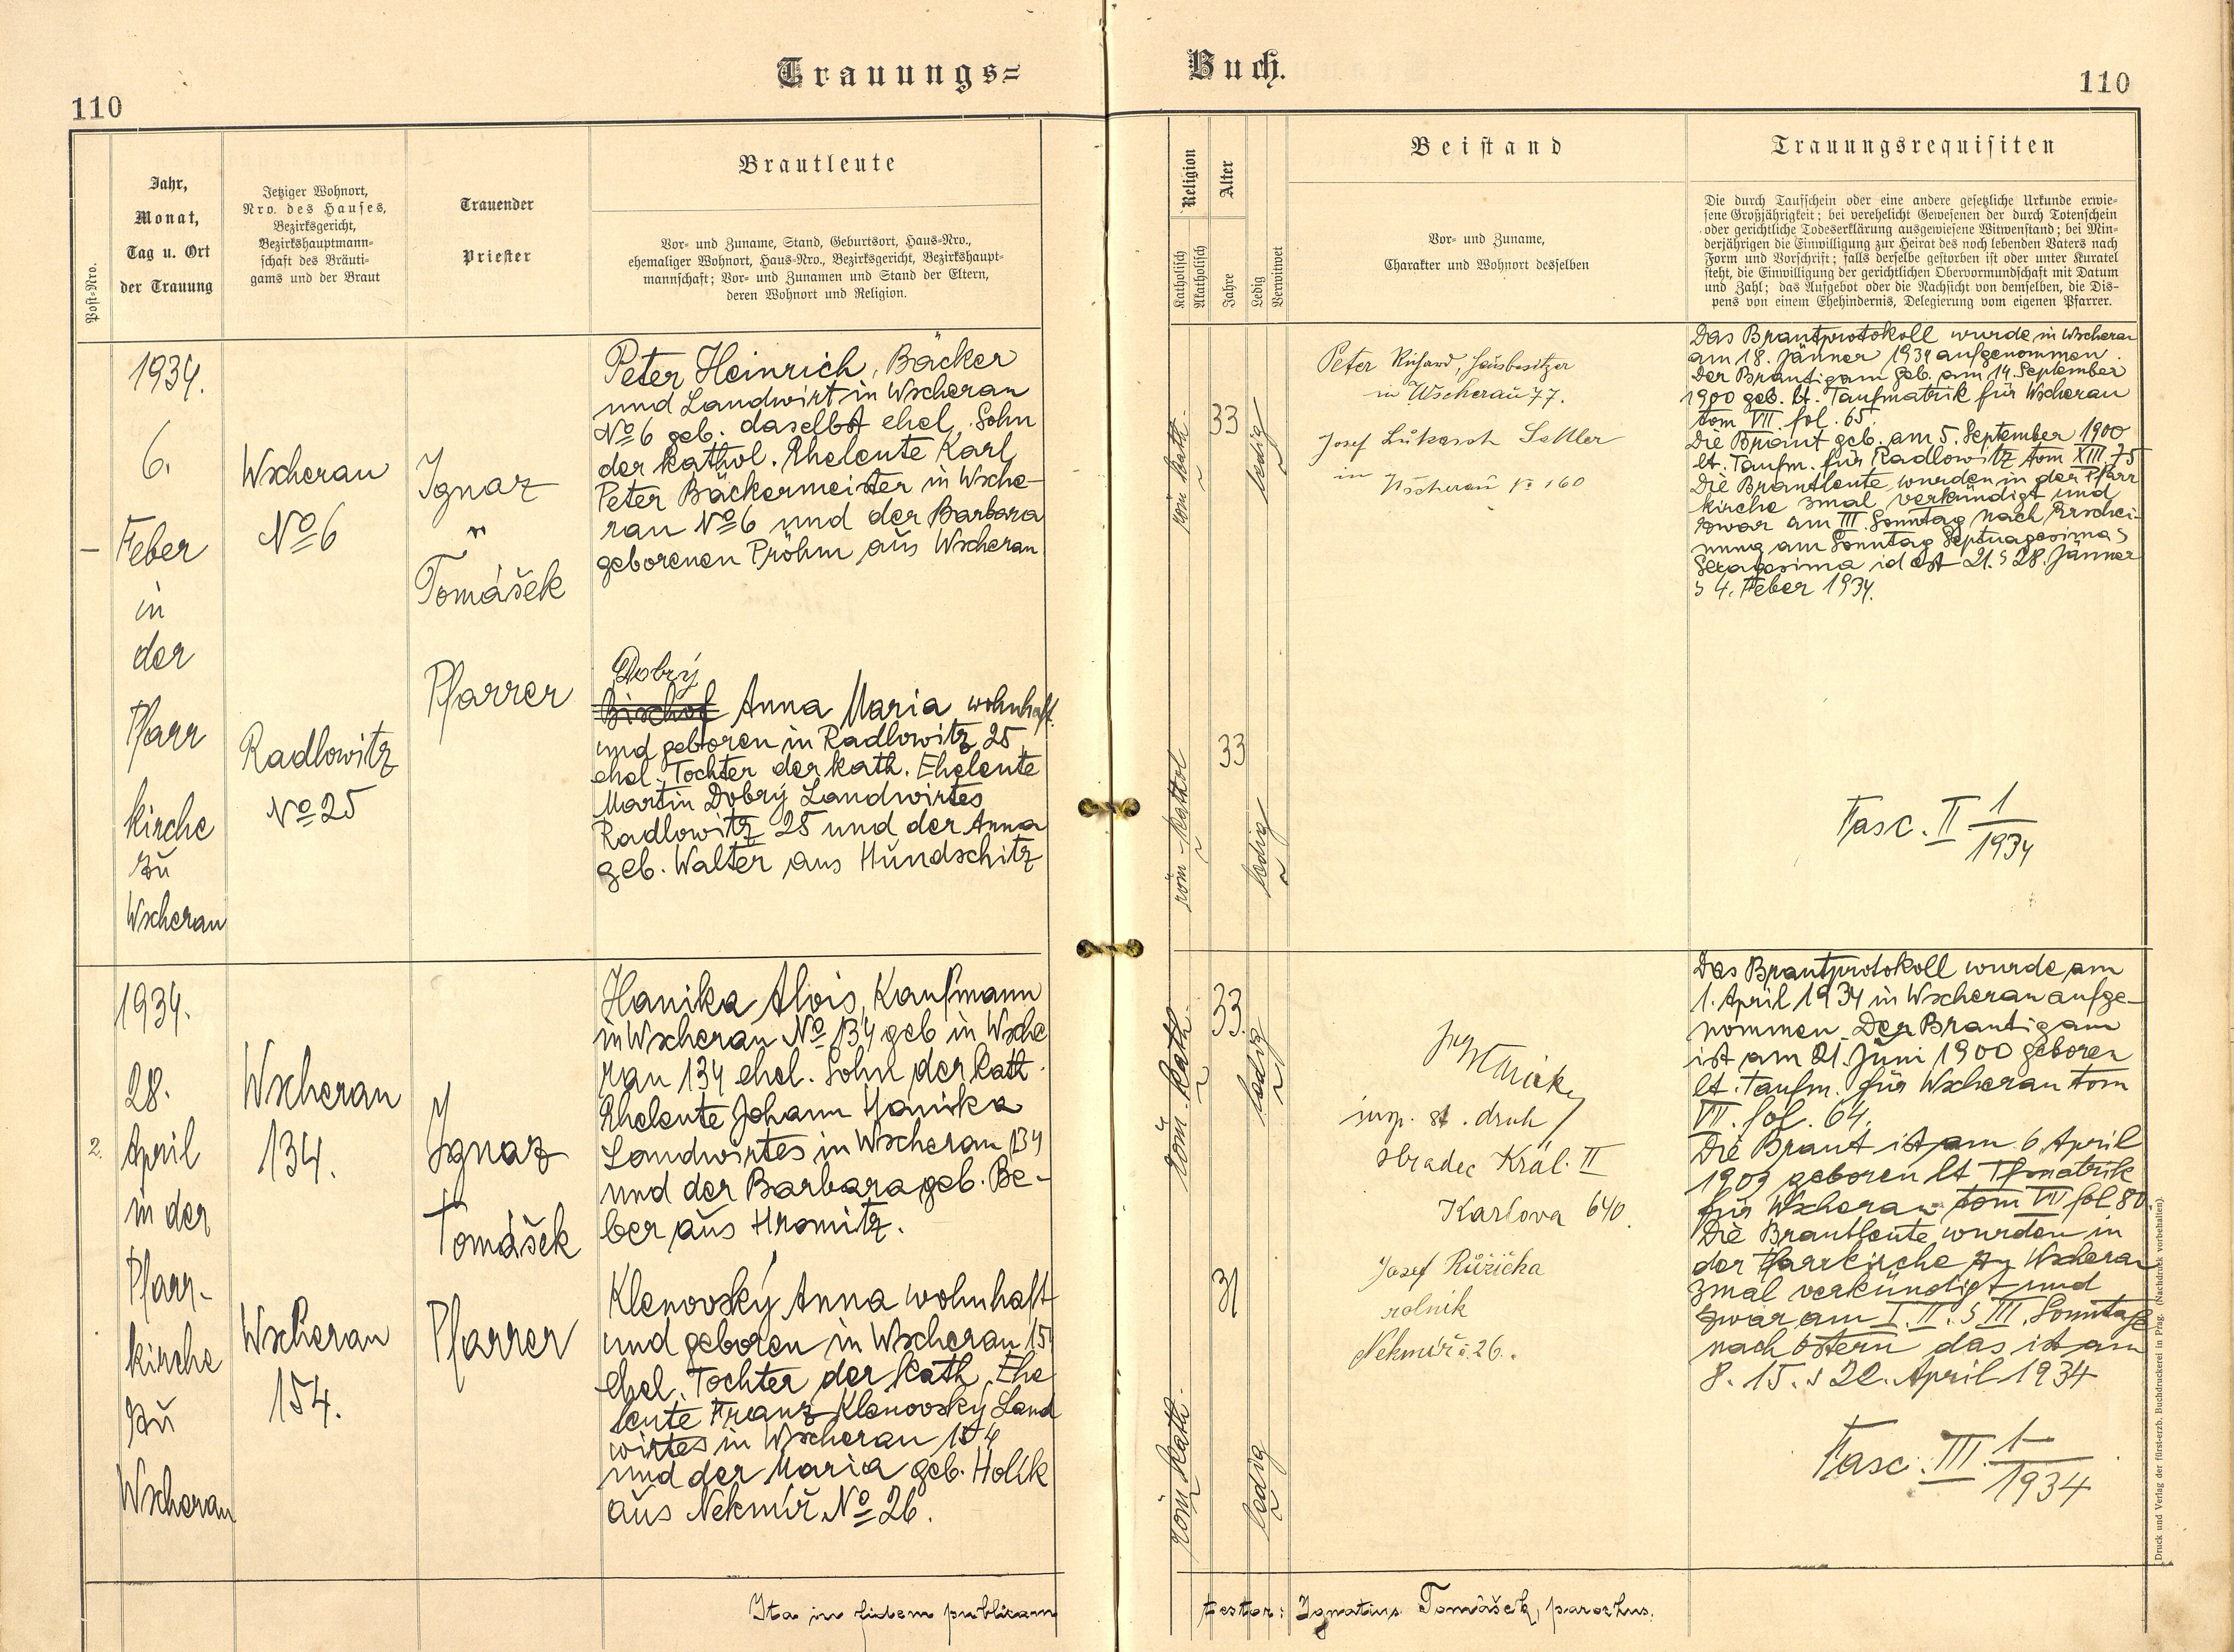 Trauungs=
Buch.
110
110
Post-Nro.
Jahr,
Monat,
Tag u. Ort
der Trauung
Jetziger Wohnort,
Nro. des Hauses,
Bezirksgericht,
Bezirkshauptmann-
schaft des Bräuti-
gams und der Braut
Trauender
Priester
Brautleute
Vor- und Zuname, Stand, Geburtsort, Haus-Nro.,
ehemaliger Wohnort, Haus-Nro., Bezirksgericht, Bezirkshaupt-
mannschaft; Vor- und Zunamen und Stand der Eltern,
deren Wohnort und Religion.
Religion
Katholisch
Akatholisch
Alter
Jahre
Ledig
Verwitwet
Beistand
Vor- und Zuname,
Charakter und Wohnort desselben
Trauungsrequisiten
Die durch Taufschein oder eine andere gesetzliche Urkunde erwie-
sene Großjährigkeit; bei verehelicht Gewesenen der durch Totenschein
oder gerichtliche Todeserklärung ausgewiesene Witwenstand; bei Min-
derjährigen die Einwilligung zur Heirat des noch lebenden Vaters nach
Form und Vorschrift; falls derselbe gestorben ist oder unter Kuratel
steht, die Einwilligung der gerichtlichen Obervormundschaft mit Datum
und Zahl; das Aufgebot oder die Nachsicht von demselben, die Dis-
pens von einem Ehehindernis, Delegierung vom eigenen Pfarrer.
1934.
6.
Feber
in
der
Pfarr
kirche
zu
Wscherau
Wscherau
No 6
Radlowitz
No 25
Ignaz
Tomášek
Pfarrer
Peter Heinrich, Bäcker
und Landwirt in Wscherau
No 6 geb. daselbst ehel. Sohn
der kathol. Eheleute Karl
Peter Bäckermeister in Wsche-
rau No 6 und der Barbara
geborenen Pröhm aus Wscherau
Dobrý
Bischof Anna Maria wohnhaft
und geboren in Radlowitz 25
ehel. Tochter der kath. Eheleute
Martin Dobrý Landwirtes
Radlowitz 25 und der Anna
geb. Walter aus Hundschitz
röm kath.
33
ledig
röm-kathol
33
ledig
Peter Richard, Hausbesitzer
in Wscherau 77.
Josef Lukasch Sattler
in Wscherau No 160
Das Brautprotokoll wurde in Wscherau
am 18. Jänner 1934 aufgenommen.
Der Brautigam geb. am 14. September
1900 geb. lt. Taufmatrik für Wscherau
tom VII. fol. 65.
Die Braut geb. am 5. September 1900
lt. Taufm. für Radlowitz tom XIII. 75
Die Brautleute wurden in der Pfarr
kirche 3mal verkündigt und
zwar am III. Sonntag nach Erschei-
nung am Sonntag Septuagesima &
Sexagesima id est 21. & 28. Jänner
& 4. Feber 1934.
Fasc. II 1/1934
2.
1934.
28.
April
in der
Pfarr-
kirche
zu
Wscherau
Wscherau
134.
Wscherau
154.
Ignaz
Tomášek
Pfarrer
Hanika Alois, Kaufmann
in Wscherau No 134 geb in Wsche
rau 134 ehel. Sohn der kath.
Eheleute Johann Hanika
Landwirtes in Wscherau 134
und der Barbara geb. Be-
ber aus Hromitz.
Klenovský Anna wohnhaft
und geboren in Wscherau 154
ehel. Tochter der kath. Ehe
leute Franz Klenovský Land
wirtes in Wscherau 154
und der Maria geb. Holík
aus Nekmíř No 26.
röm. kath.
33.
ledig
röm kath.
31
ledig
insp. st. drah
Hradec Král. II
Karlova 640.
Josef Růžička
rolník
Nekmíř č. 26.
Das Brautprotokoll wurde am
1. April 1934 in Wscherau aufge-
nommen. Der Brautigam
ist am 21. Juni 1900 geboren
lt. Taufm. für Wscherau tom
VII. fol. 64.
Die Braut ist am 6. April
1903 geboren lt Tfmatrik
für Wscherau tom VII fol 80.
Die Brautleute wurden in
der Pfarrkirche zu Wscherau
3mal verkündigt und
zwar am I. II. & III. Sonntage
nach Ostern das ist am
8. 15. & 22. April 1934
Fasc. III. 1/1934
Ita in fidem publicam
testor: Ignatius Tomášek, parochus.
Druck und Verlag der fürst-erzb. Buchdruckerei in Prag. (Nachdruck vorbehalten).